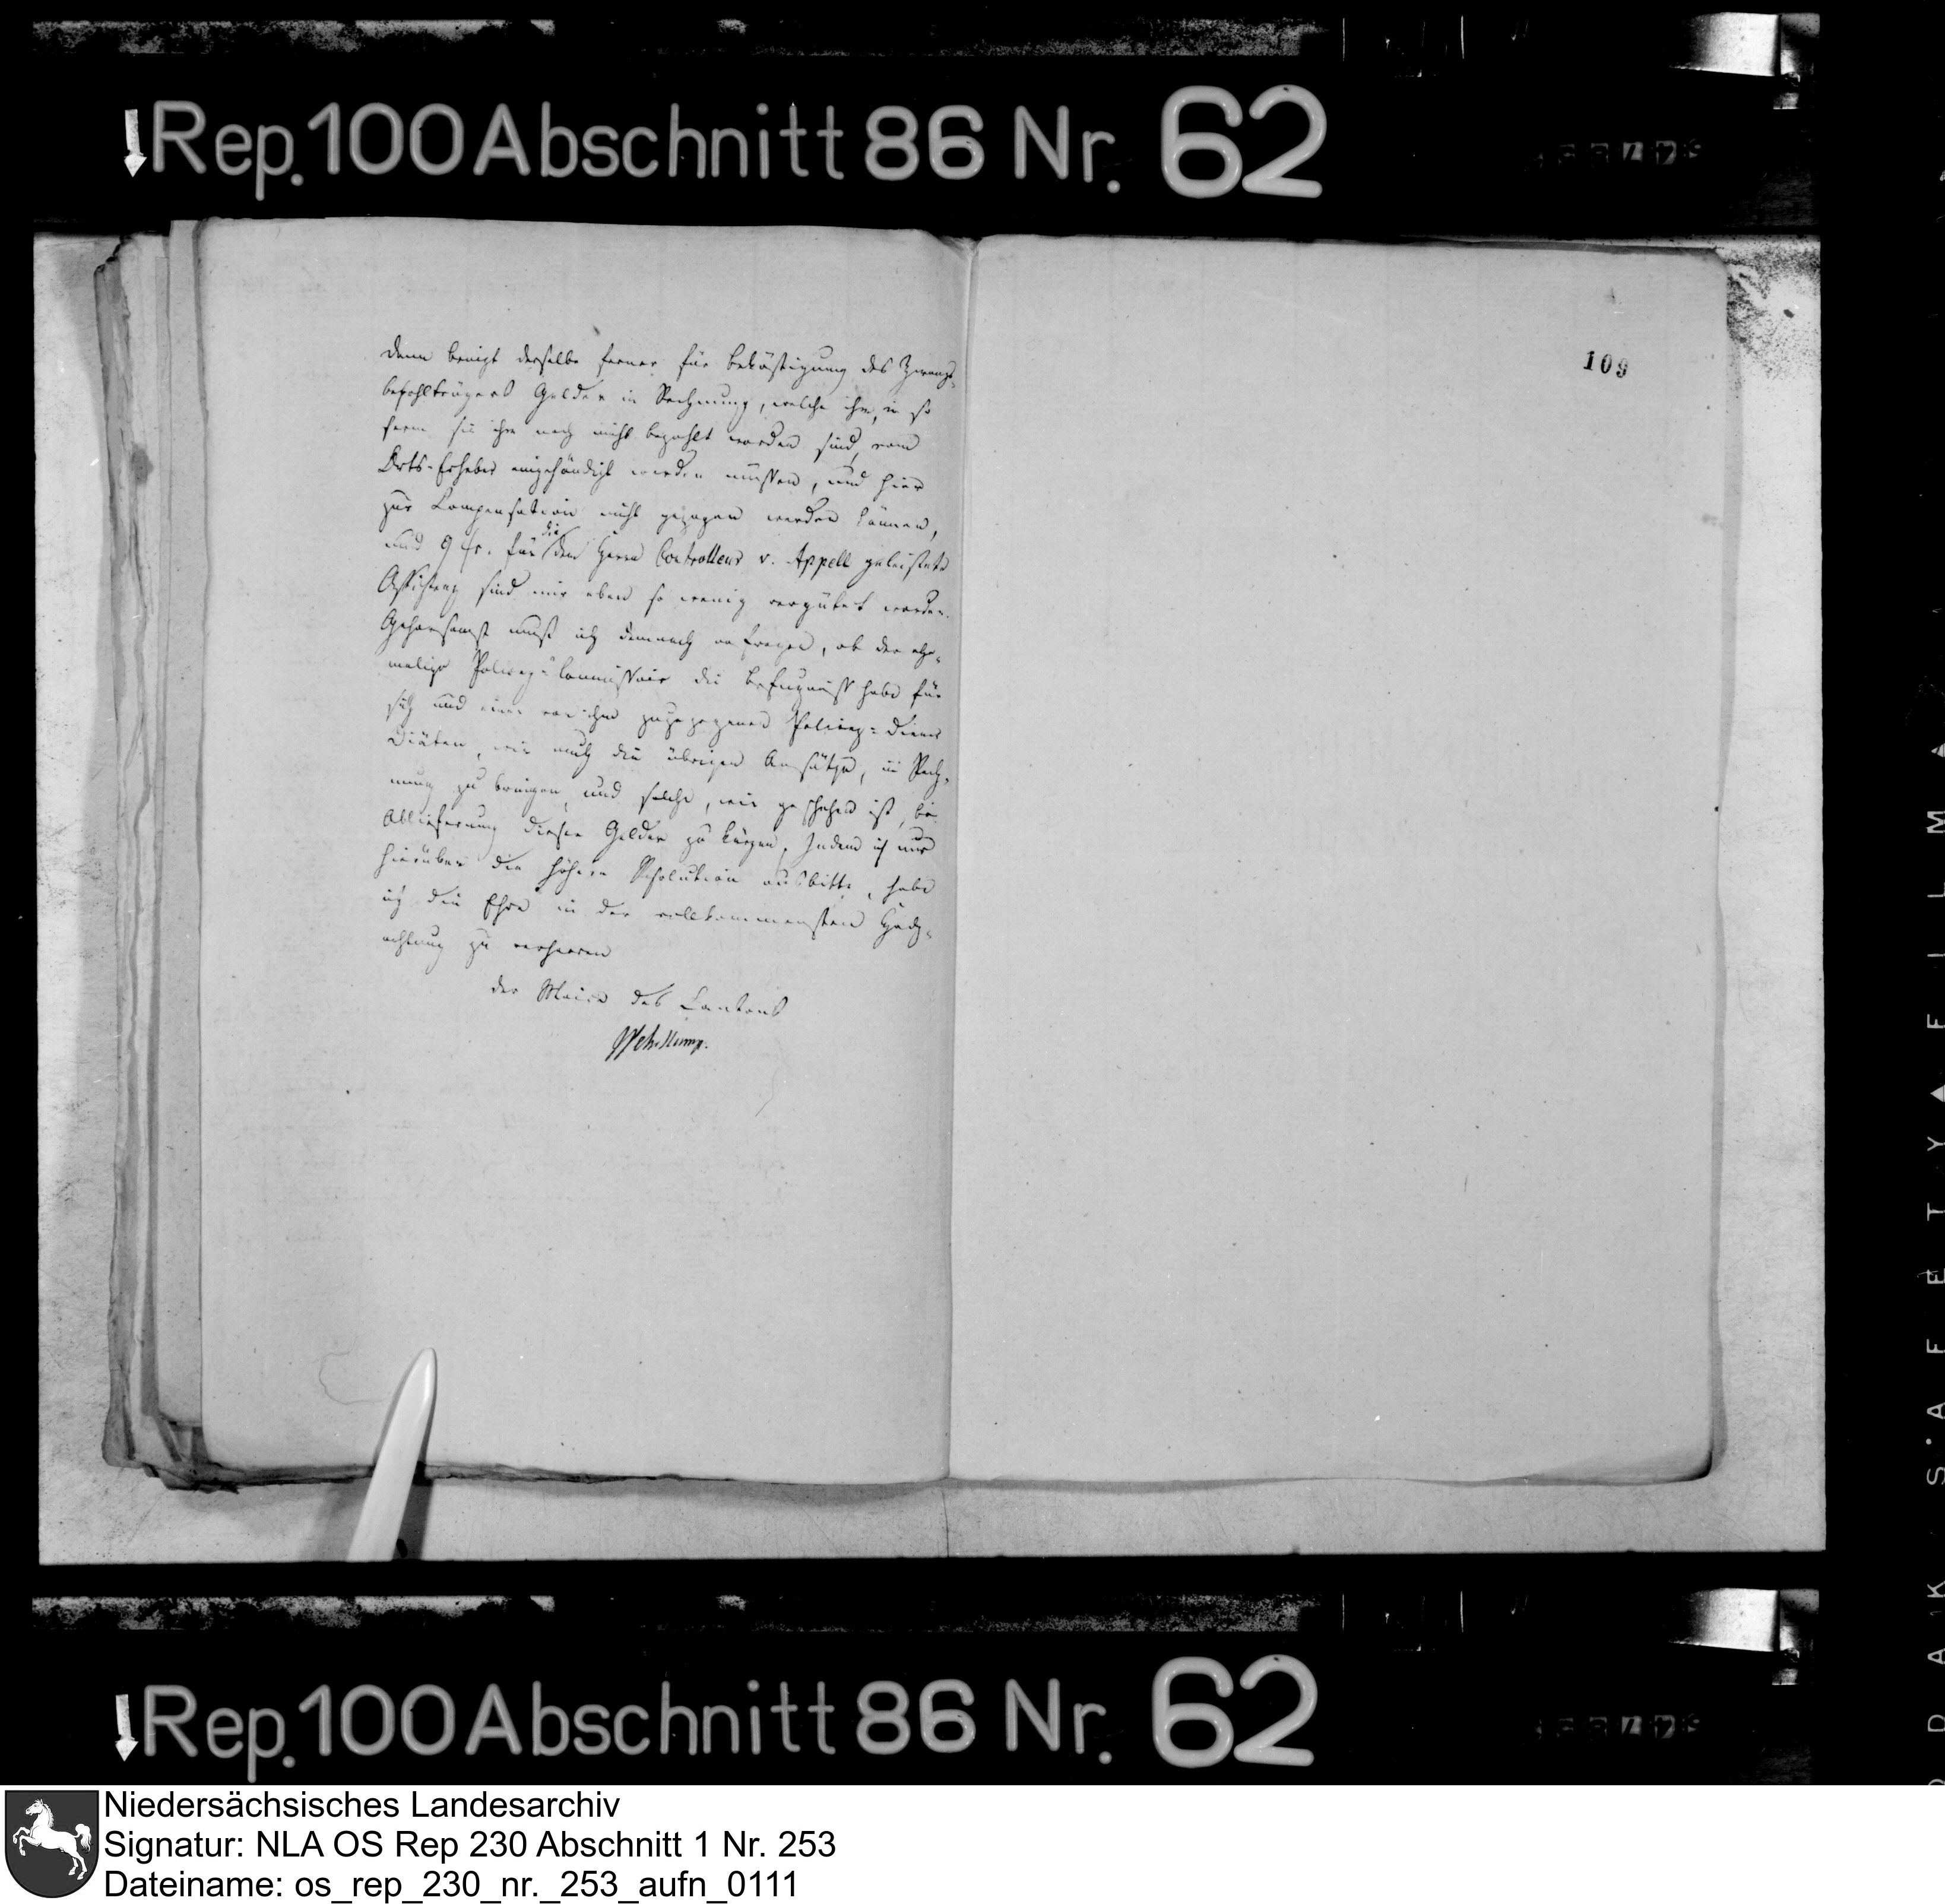 Rep. 100 Abschnitt 86 Nr. 62
109
denn bringt derselbe ferner für Beköstigung des Zwangs-
befehlträgers Gelder in Rechnung, welche ihm, in so
fern sie ihm noch nicht bezahlt worden sind, vom
Orts-Erheber eingehändigt werden müssen, und hier
zur Compensation nicht gezogen werden können,
und 9 fr. für die dem Herrn Controlleur v. Appell geleistete
Assistenz sind mir eben so wenig vergütet worden.
Gehorsamst muß ich demnach anfragen, ob der ehe-
malige Policey-Commissair die Befugniß habe für
sich und einen von ihm zugezogenen Policey-Diener
Diäten, wie auch die übrigen Ansätze, in Rech-
nung zu bringen, und solche, wie geschehen ist, bei
Ablieferung dieser Gelder zu kürzen. Indem ich mir
hierüber die höhere Resolution ausbitte, habe
ich die Ehre in der vollkommensten Hoch-
achtung zu verharren
der Maire des Cantons
Rep. 100 Abschnitt 86 Nr. 62
SAFETY FILM
Niedersächsisches Landesarchiv
Signatur: NLA OS Rep 230 Abschnitt 1 Nr. 253
Dateiname: os_rep_230_nr._253_aufn_0111